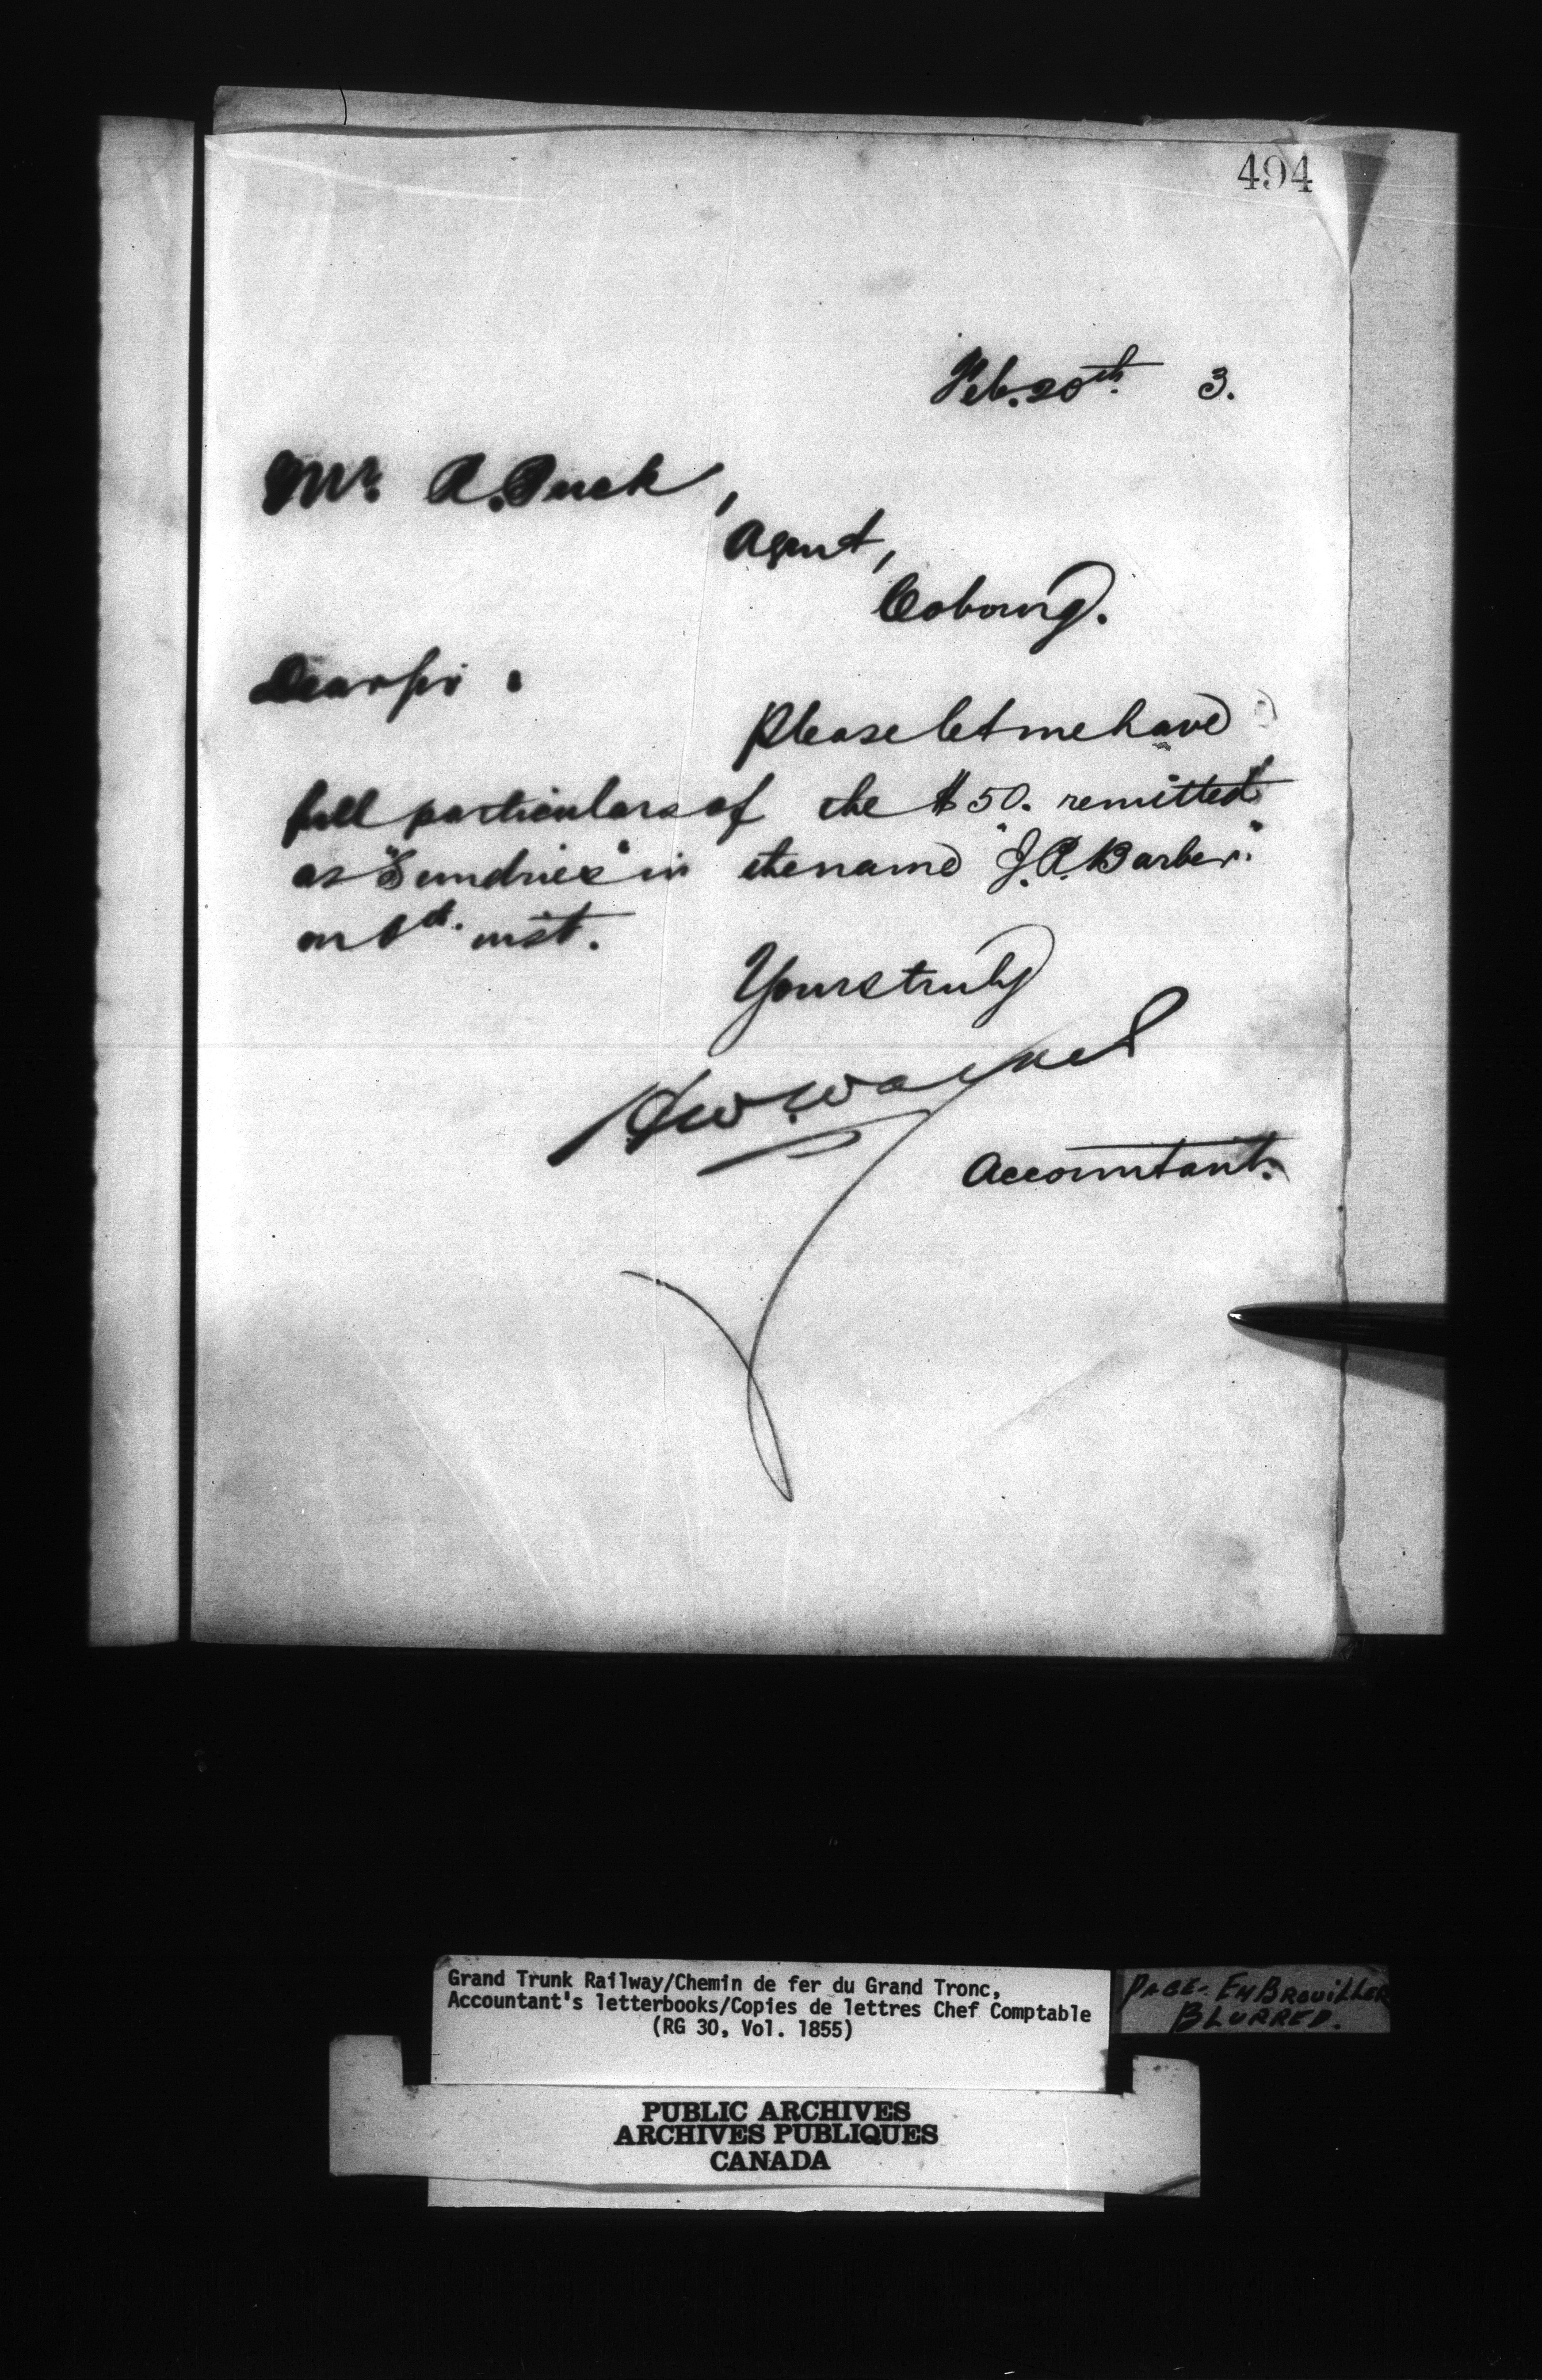 494
Feb. 20th 3.
Mr. R. Duck,
Agent,
Cobourg.
Dear Sir:
Please let me have
full particulars of the $50. remitted
as "Sundries" in the name "J. R. Barber."
on 6th. inst.
Yours truly
Accountant.
Grand Trunk Railway/Chemin de fer du Grand Tronc,
Accountant's letterbooks/Copies de lettres Chef Comptable
(RG 30, Vol. 1855)
PAGE-EMBROUILLER
BLURRED.
PUBLIC ARCHIVES
ARCHIVES PUBLIQUES
CANADA